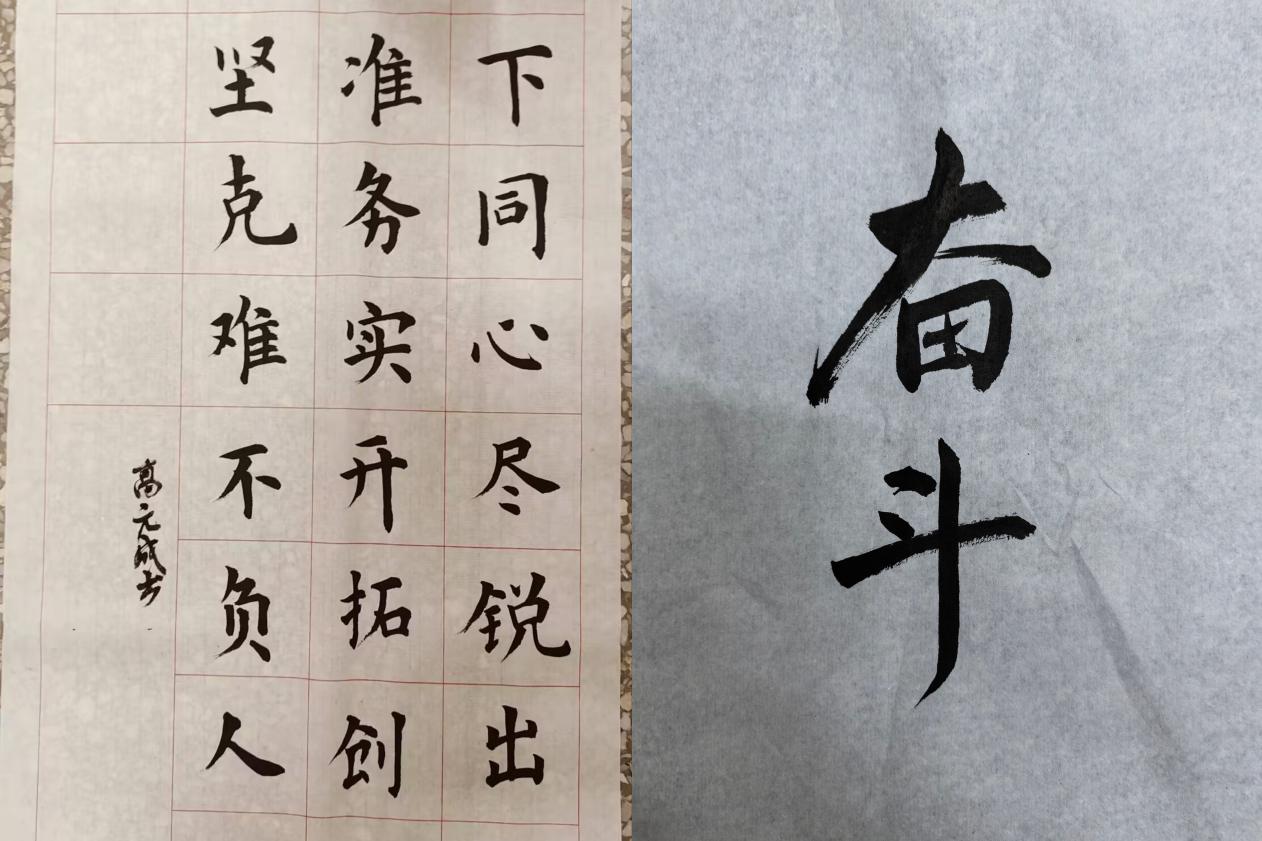 下同心尽锐出
准务实开拓创
坚克难不负人
高元成书
奋斗